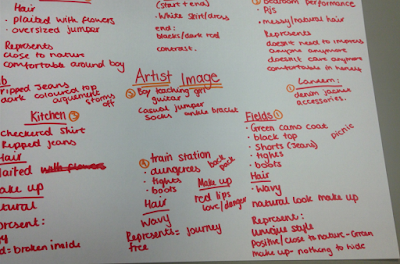 Hair
• plaited with flowers
• oversized jumper
Represents
close to nature
comfortable around boy
(start + end)
• White shirt/dress
end:
blacks/dark red
contrast.
bedroom performance
• PJs
• messy/natural hair
Represents
doesn't need to impress
anyone anymore
doesn't care anymore
comfortable in
ripped jeans
dark coloured top
arguement
storms
off
Artist Image
Boy teaching girl
guitar
casual jumper
socks ankle bracelet
Lantern:
denim jacket
accessories.
Kitchen
checkered shirt
Ripped jeans
Hair
plaited with flowers
make up
natural
represent:
= broken inside
4 train station
• dungerees
• tights
• boots
back
pack
Hair
wavy
Represents = journey
free
Make up
red lips
love/danger
Fields: 1
• Green camo coat
• black top
• Shorts (jeans)
• tights
• boots
picnic
Hair
• wavy
natural look make up
Represent:
unique style
Positive/close to nature - Green
make up - nothing to hide